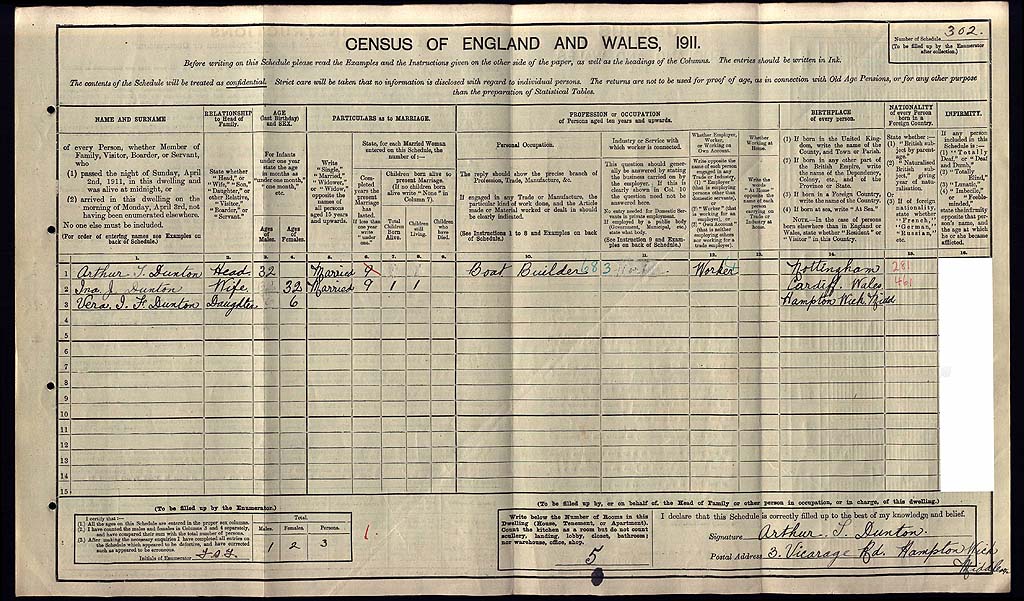 Number of Schedule 302.
(To be filled up by the Enumerator
after collection.)
CENSUS OF ENGLAND AND WALES, 1911.
Before writing on this Schedule please read the Examples and the Instructions given on the other side of the paper, as well as the headings of the Columns. The entries should be written in Ink.
The contents of the Schedule will be treated as confidential. Strict care will be taken that no information is disclosed with regard to individual persons. The returns are not to be used for proof of age, as in connection with Old Age Pensions, or for any other purpose
than the preparation of Statistical Tables.
NAME AND SURNAME
of every Person, whether Member of
Family, Visitor, Boarder, or Servant,
who
(1) passed the night of Sunday, April
2nd, 1911, in this dwelling and
was alive at midnight, or
(2) arrived in this dwelling on the
morning of Monday, April 3rd, not
having been enumerated elsewhere.
No one else must be included.
(For order of entering names see Examples on
back of Schedule.)
RELATIONSHIP
to Head of
Family.
State whether
"Head," or
"Wife," "Son,"
"Daughter," or
other Relative,
"Visitor,"
"Boarder," or
"Servant."
AGE
(last Birthday)
and SEX.
For Infants
under one year
state the age
in months as
"under one month,"
"one month,"
etc.
Ages
of
Males.
Ages
of
Females.
PARTICULARS as to MARRIAGE.
Write
"Single,"
"Married,"
"Widower,"
or "Widow,"
opposite the
names of all
persons
aged 15 years
and upwards.
State, for each Married Woman
entered on this Schedule, the
number of :—
Completed
years the
present
Marriage
has
lasted.
If less than
one year
write
"under
one."
Children born alive to
present Marriage.
(If no children born
alive write "None" in
Column 7).
Total
Children
Born
Alive.
Children
still
Living.
Children
who
have
Died.
PROFESSION or OCCUPATION
of Persons aged ten years and upwards.
Personal Occupation.
The reply should show the precise branch of
Profession, Trade, Manufacture, &c.
If engaged in any Trade or Manufacture, the
particular kind of work done, and the Article
made or Material worked or dealt in should
be clearly indicated.
(See Instructions 1 to 8 and Examples on back
of Schedule.)
Industry or Service with
which worker is connected.
This question should gener-
ally be answered by stating
the business carried on by
the employer. If this is
clearly shown in Col. 10
the question need not be
answered here.
No entry needed for Domestic Ser-
vants in private employment.
If employed by a public body
(Government, Municipal, etc.)
state what body.
(See Instruction 9 and Exam-
ples on back of Schedule.)
Whether Employer,
Worker, or
Working on
Own Account.
Whether
Working at
Home.
BIRTHPLACE
of every person.
(1) If born in the United King-
dom, write the name of the
County, and Town or Parish.
(2) If born in any other part of
the British Empire, write
the name of the Dependency,
Colony, etc., and of the
Province or State.
(3) If born in a Foreign Country,
write the name of the Country.
(4) If born at sea, write "At Sea."
NOTE.—In the case of persons
born elsewhere than in England or
Wales, state whether "Resident" or
"Visitor" in this Country.
NATIONALITY
of every Person
born in a
Foreign Country.
INFIRMITY.
1 Arthur T. Dunton Head 32 Married 9 Boat Builder 683 Worker Nottingham 281
2 Ina J Dunton Wife 32 Married 9 1 1 Cardiff. Wales 461
3 Vera I. F. Dunton Daughter 6 Hampton Wick Midd
4
5
6
7
8
9
10
11
12
13
14
15
(To be filled up by the Enumerator.)
I certify that :—
(1.) All the ages on this Schedule are entered in the proper sex columns.
(2.) I have counted the males and females in Columns 3 and 4 separately,
and have compared their sum with the total number of persons.
(3.) After making the necessary enquiries I have completed all entries on
the Schedule which appeared to be defective, and have corrected
such as appeared to be erroneous.
Initials of Enumerator
Total.
Males. Females. Persons.
1 2 3
(To be filled up by, or on behalf of, the Head of Family or other person in occupation, or in charge, of this dwelling.)
Write below the Number of Rooms in this
Dwelling (House, Tenement, or Apartment).
Count the kitchen as a room but do not count
scullery, landing, lobby, closet, bathroom;
nor warehouse, office, shop.
5
I declare that this Schedule is correctly filled up to the best of my knowledge and belief.
Signature Arthur T. Dunton.
Postal Address 3. Vicarage Rd. Hampton Wick
Middlesex